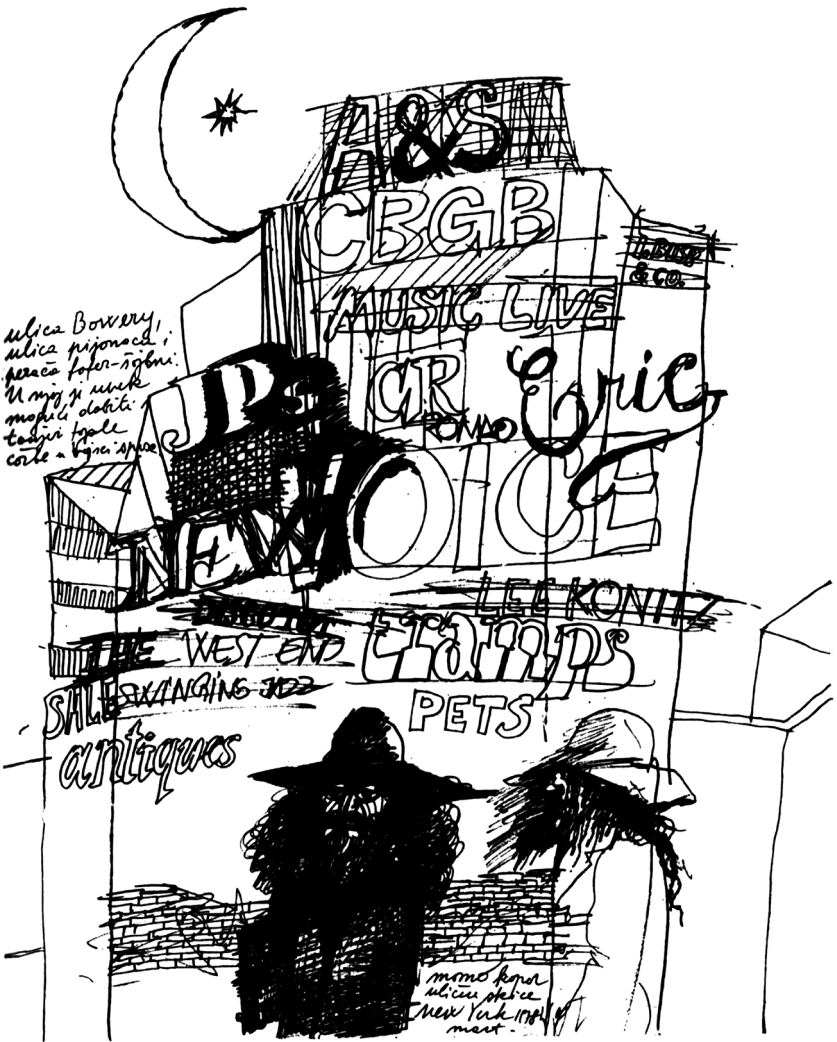 A&S
CBGB
I. Buss
& CO.
MUSIC LIVE
ulica Bowery,
ulica pijanaca i
perača šofer-šajbni.
U njoj je uvek
moguće dobiti
tanjir tople
čorbe u
JPS
GR
Eric
ROMAO
NEW VOICE
LEE KONITZ
THE WEST END
tramps
SALE SWINGING JAZZ
PETS
antiques
momo kapor
ulične skice
New York 1978
mart.